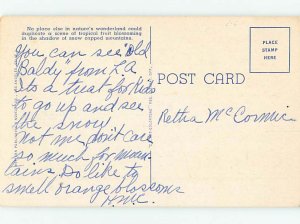 No place else in nature's wonderland could
duplicate a scene of tropical fruit blossoming
in the shadow of snow capped mountains.
You can see "Old
Baldy" from L.A
its a treat for kids
to go up and see
the snow.
not me, don't care
so much for moun
tains. Do like to
smell orange blossoms
H.M.C.
PLACE
STAMP
HERE
POST CARD
Retha McCormic